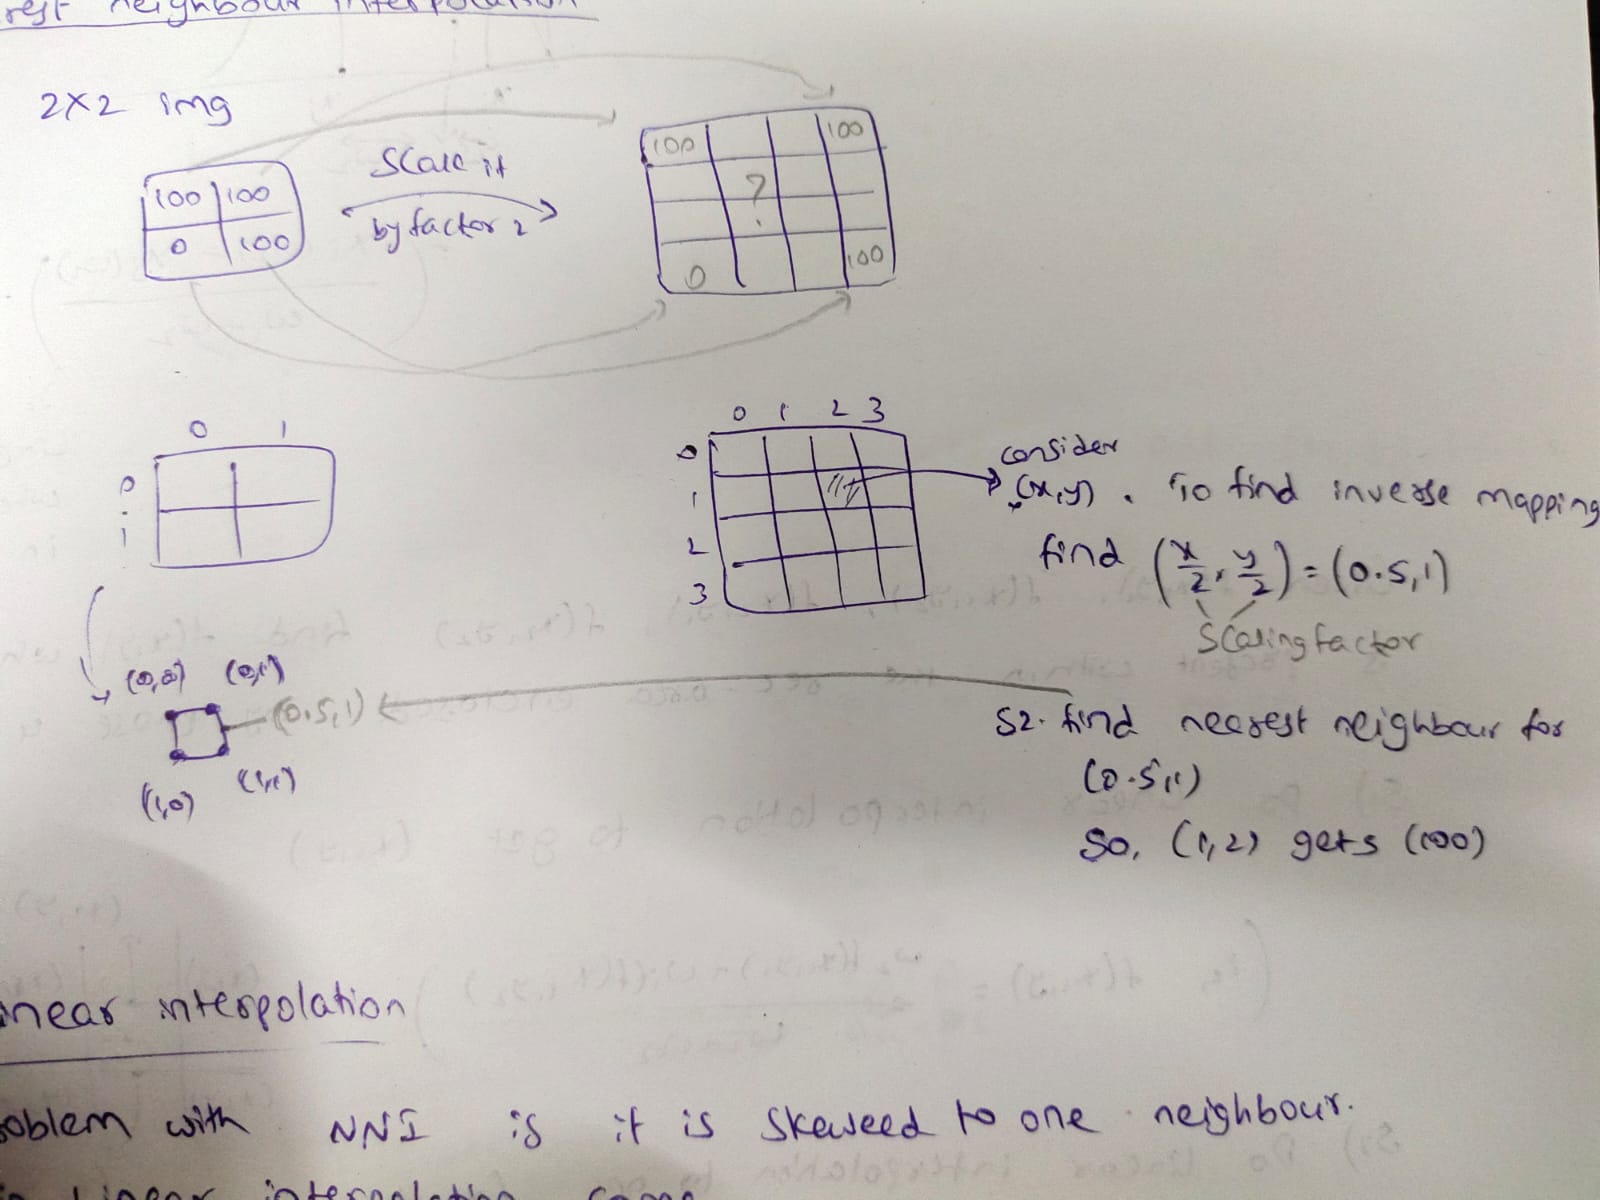 rest neighbour interpolation
2x2 img
100 100
0 100
Scale it
by factor 2
100 100
?
0 100
0 1
0
1
0 1 2 3
0
1
2
3
consider
(x,y). To find inverse mapping
find (x/2, y/2) = (0.5,1)
Scaling factor
(0,0) (0,1)
(0.5,1)
(1,0) (1,1)
S2. find nearest neighbour for
(0.5,1)
So, (1,2) gets (100)
near interpolation
oblem with NNI is it is skeweed to one neighbour.
Linear interpolation came